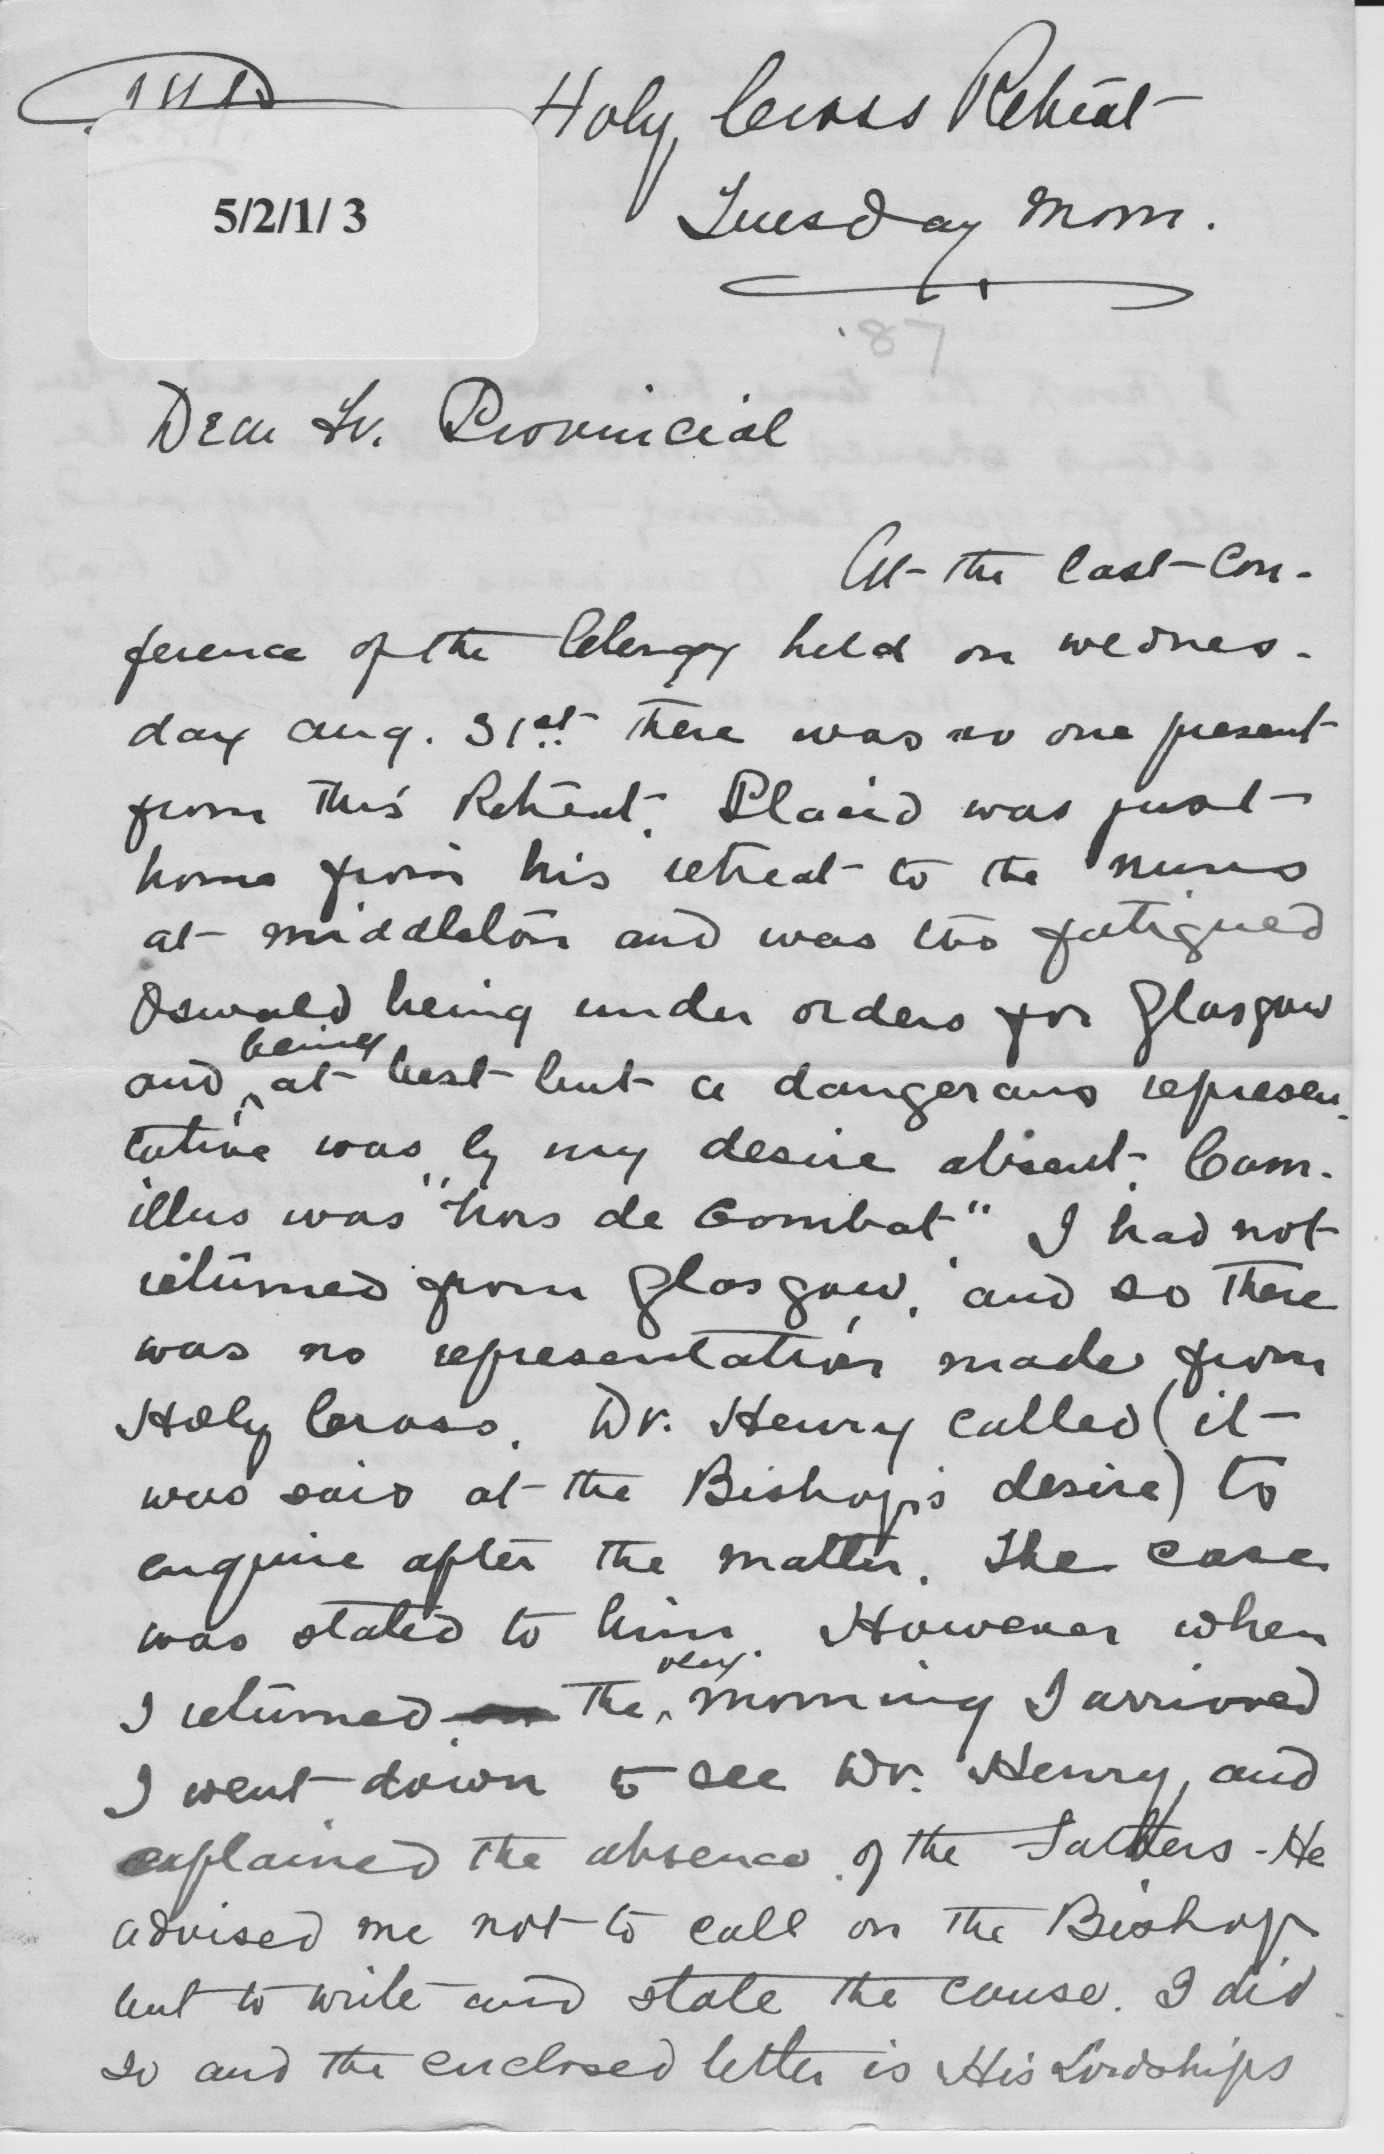 Holy Cross Retreat
5/2/1/ 3
Tuesday Morn.
'87
Dear Fr. Provincial
At the last Con-
ference of the Clergy held on Wednes-
day Aug. 31st there was no one present
from this Retreat. Placid was just
home from his retreat to the nuns
at Middleton and was too fatigued
Oswald being under orders for Glasgow
and being at best but a dangerous represen-
tative was by my desire absent. Cam-
illus was "hors de Combat". I had not
returned from Glasgow, and so there
was no representation made from
Holy Cross. Dr. Henry called (it
was said at the Bishop's desire) to
enquire after the matter. The case
was stated to him. However when
I returned the very morning I arrived
I went down to see Dr. Henry, and
explained the absence of the Fathers - He
advised me not to call on the Bishop
but to write and state the cause. I did
so and the enclosed letter is His Lordships